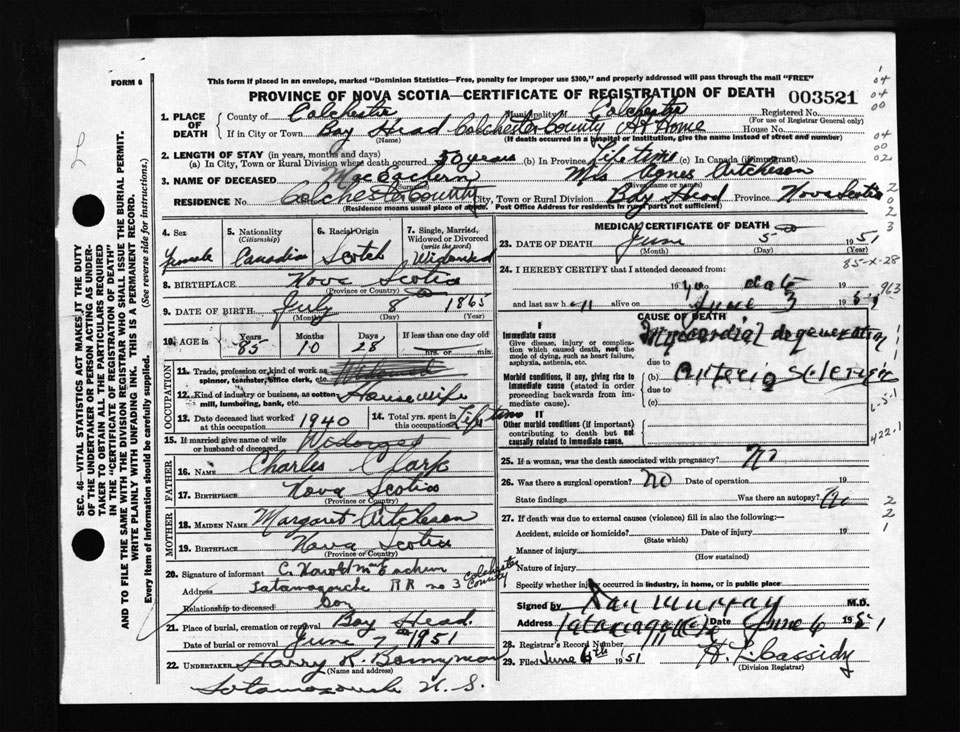 FORM 6
This form if placed in an envelope, marked "Dominion Statistics—Free, penalty for improper use $300," and properly addressed will pass through the mail "FREE"
PROVINCE OF NOVA SCOTIA—CERTIFICATE OF REGISTRATION OF DEATH 003521
1. PLACE OF DEATH
County of Colchester Municipality of Colchester Registered No.
(For use of Registrar General only)
If in City or Town Bay Head Colchester County At Home House No.
(Name) (If death occurred in a hospital or institution, give the name instead of street and number)
2. LENGTH OF STAY (in years, months and days)
(a) In City, Town or Rural Division where death occurred 50 years (b) In Province Life time (c) In Canada (if immigrant)
3. NAME OF DECEASED MacEachern Mrs Agnes Aitcheson
(Surname) (Given name or names)
RESIDENCE No. Colchester County City, Town or Rural Division Bay Head Province Nova Scotia
(Residence means usual place of abode. Post Office Address for residents in rural parts not sufficient)
4. Sex Female
5. Nationality (Citizenship) Canadian
6. Racial Origin Scotch
7. Single, Married, Widowed or Divorced (write the word) Widowed
8. BIRTHPLACE Nova Scotia
(Province or Country)
9. DATE OF BIRTH July 8 1865
(Month) (Day) (Year)
10. AGE in Years Months Days If less than one day
85 10 28 hrs. or min.
OCCUPATION
11. Trade, profession or kind of work as spinner, teamster, office clerk, etc.
12. Kind of industry or business, as cotton mill, lumbering, bank, etc. Housewife
13. Date deceased last worked at this occupation 1940
14. Total yrs. spent in this occupation Life time
15. If married give name of wife or husband of deceased
FATHER
16. NAME Charles Clark
17. BIRTHPLACE Nova Scotia
(Province or Country)
MOTHER
18. MAIDEN NAME Margaret Aitcheson
19. BIRTHPLACE Nova Scotia
(Province or Country)
20. Signature of informant C. Harold MacEachern
Address Tatamagouche RR no 3 Colchester County
Relationship to deceased Son
21. Place of burial, cremation or removal Bay Head
Date of burial or removal June 7th 1951
22. UNDERTAKER Harry R. Bonnyman
(Name and address)
Tatamagouche N.S.
MEDICAL CERTIFICATE OF DEATH
23. DATE OF DEATH June 5 1951
(Month) (Day) (Year)
85-X-28
24. I HEREBY CERTIFY that I attended deceased from:
1940 to date 19
and last saw h alive on June 3 1951
CAUSE OF DEATH
I
Immediate cause
Give disease, injury or complication which caused death, not the mode of dying, such as heart failure, asphyxia, asthenia, etc.
Myocardial degeneration
due to
Morbid conditions, if any, giving rise to immediate cause (stated in order proceeding backwards from immediate cause).
(b) Arterio Sclerosis
due to
(c)
II
Other morbid conditions (if important) contributing to death but not causally related to immediate cause.
422.1
25. If a woman, was the death associated with pregnancy? No
26. Was there a surgical operation? No Date of operation 19
State findings Was there an autopsy? No
27. If death was due to external causes (violence) fill in also the following:—
Accident, suicide or homicide? Date of injury 19
(State which)
Manner of injury
(How sustained)
Nature of injury
Specify whether injury occurred in industry, in home, or in public place
Signed by Dan Murray M.D.
Address Tatamagouche Date June 6 1951
28. Registrar's Record Number
29. Filed June 6th 1951 H. L. Cassidy
(Division Registrar)
SEC. 46—VITAL STATISTICS ACT MAKES IT THE DUTY
OF THE UNDERTAKER OR PERSON ACTING AS UNDERTAKER TO OBTAIN ALL THE PARTICULARS REQUIRED
IN THE "CERTIFICATE OF REGISTRATION OF DEATH"
AND TO FILE THE SAME WITH THE DIVISION REGISTRAR WHO SHALL ISSUE THE BURIAL PERMIT.
WRITE PLAINLY WITH UNFADING INK. THIS IS A PERMANENT RECORD.
Every item of information should be carefully supplied. (See reverse side for instructions.)